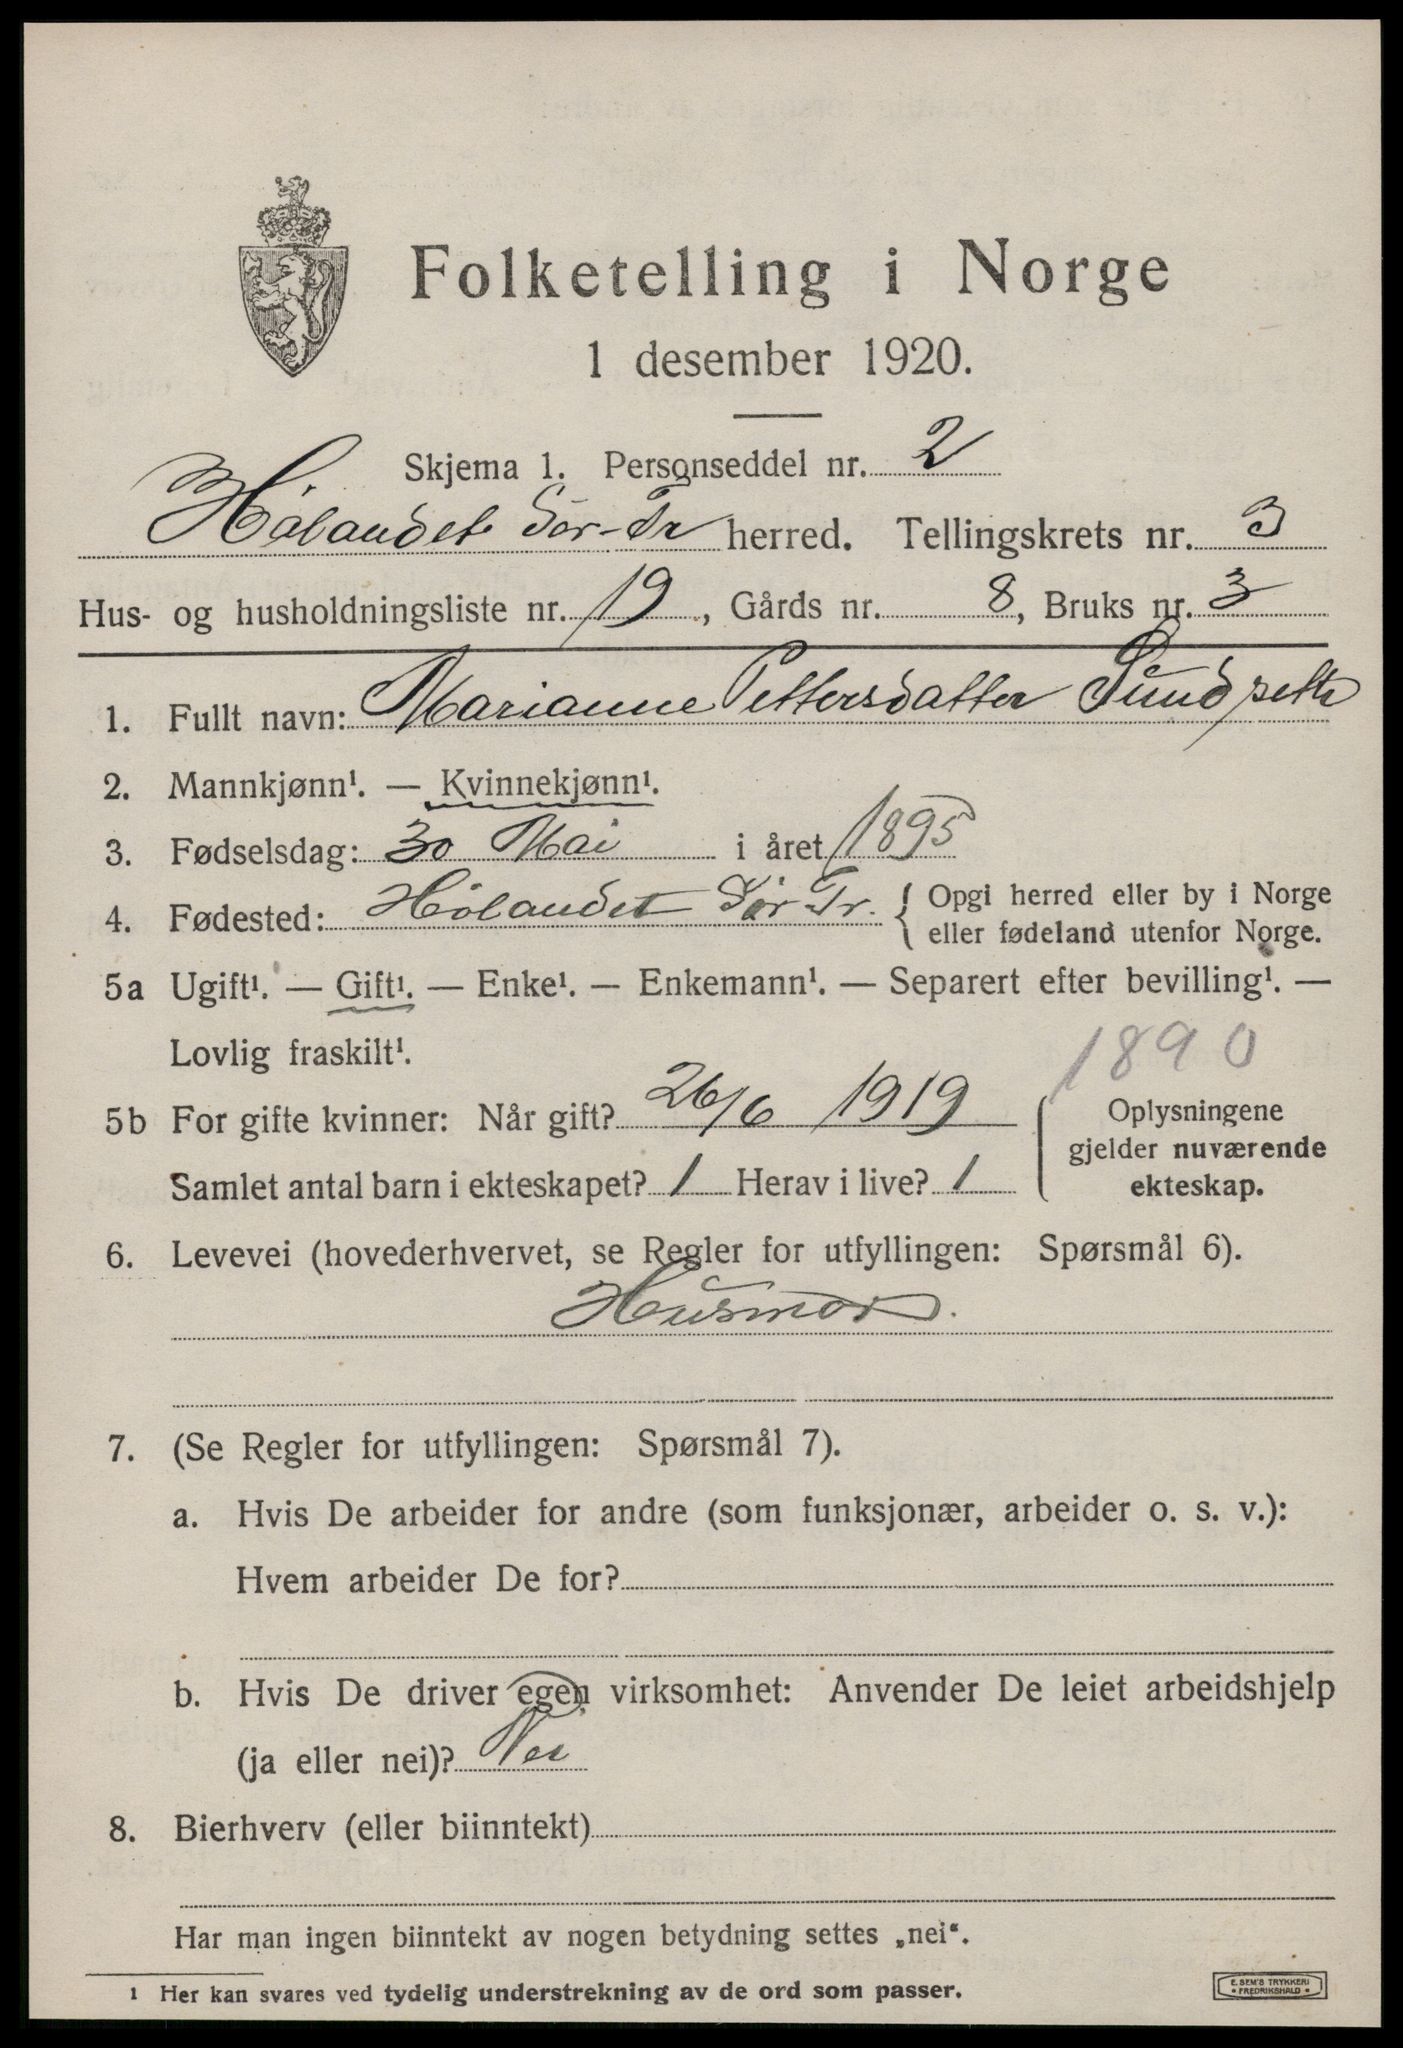 Folketelling i Norge
1 desember 1920.
Skjema 1. Personseddel nr. 2
Hølandet Sør-Tr herred. Tellingskrets nr. 3
Hus- og husholdningsliste nr. 19, Gårds nr. 8, Bruks nr. 3
1. Fullt navn: Marianne Pettersdatter Sundsette
2. Mannkjønn¹. — Kvinnekjønn¹.
3. Fødselsdag: 30 Mai i året 1895
4. Fødested: Hølandet Sør Tr. { Opgi herred eller by i Norge
eller fødeland utenfor Norge.
5a Ugift¹. — Gift¹. — Enke¹. — Enkemann¹. — Separert efter bevilling¹. —
Lovlig fraskilt¹.
1890
5b For gifte kvinner: Når gift? 26/6 1919
Samlet antal barn i ekteskapet? 1 Herav i live? 1
Oplysningene
gjelder nuværende
ekteskap.
6. Levevei (hovederhvervet, se Regler for utfyllingen: Spørsmål 6).
Husmor.
7. (Se Regler for utfyllingen: Spørsmål 7).
a. Hvis De arbeider for andre (som funksjonær, arbeider o. s. v.):
Hvem arbeider De for?
b. Hvis De driver egen virksomhet: Anvender De leiet arbeidshjelp
(ja eller nei)? Nei
8. Bierhverv (eller biinntekt)
Har man ingen biinntekt av nogen betydning settes „nei“.
1 Her kan svares ved tydelig understrekning av de ord som passer.
E. SEM'S TRYKKERI
• FREDRIKSHALD •